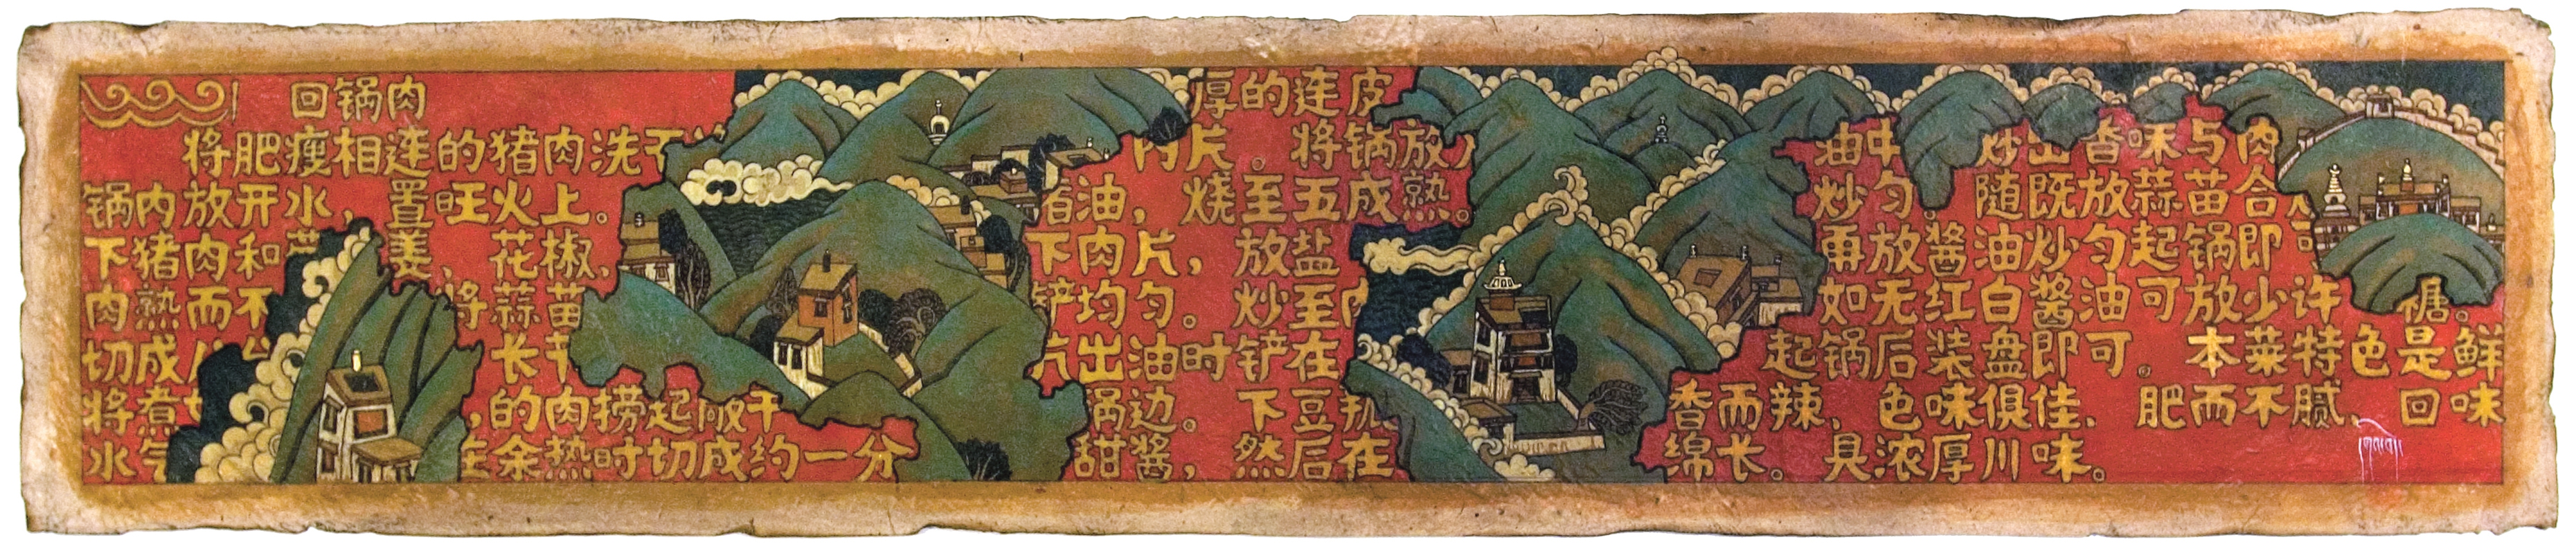 回锅肉
将肥瘦相连的猪肉洗
锅内放开水，置旺火上。
下猪肉和 姜、花椒、
肉熟而不 将蒜苗
切成 长节
将煮 的肉捞起晾干
水气 在余热时切成约一分
厚的连皮
肉片。将锅放
猪油，烧至五成熟。
下肉片，放盐
铲均匀。炒至肉
片出油时铲在
锅边。下豆瓣
甜酱，然后在
油中 炒出香味与肉
炒匀。随既放蒜苗合
再放酱油炒匀起锅即可
如无红白酱油可放少许 糖。
起锅后装盘即可。本菜特色是鲜
香而辣，色味俱佳，肥而不腻、回味
绵长。具浓厚川味。